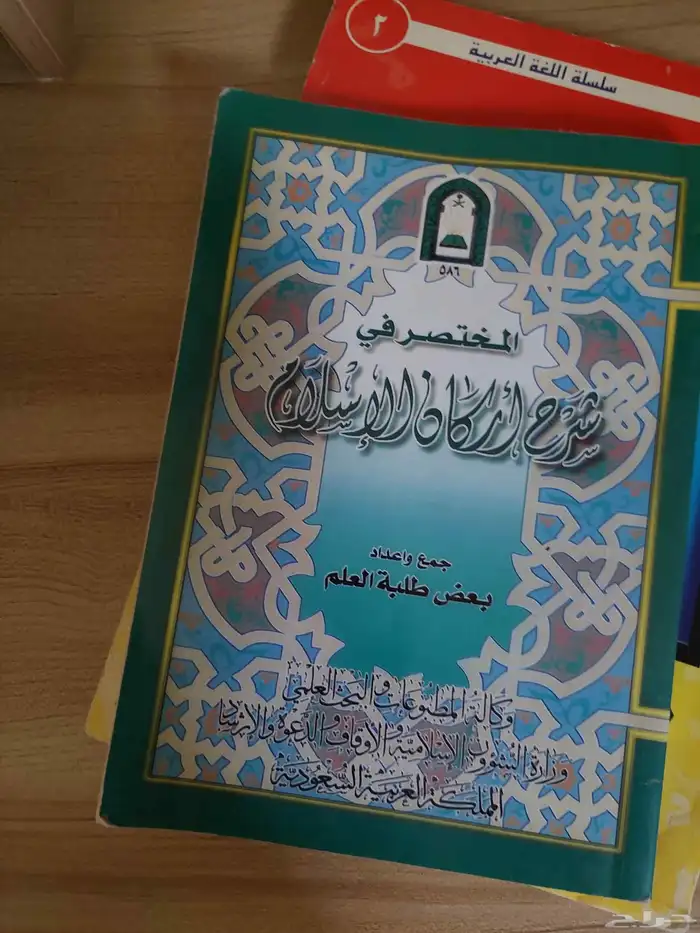 ٢
سلسلة اللغة العربية
٥٨٦
المختصر في
شرح أركان الإسلام
جمع واعداد
بعض طلبة العلم
وكالة المطبوعات والبحث العلمي
وزارة الشؤون الإسلامية والأوقاف والدعوة والإرشاد
المملكة العربية السعودية
حراج